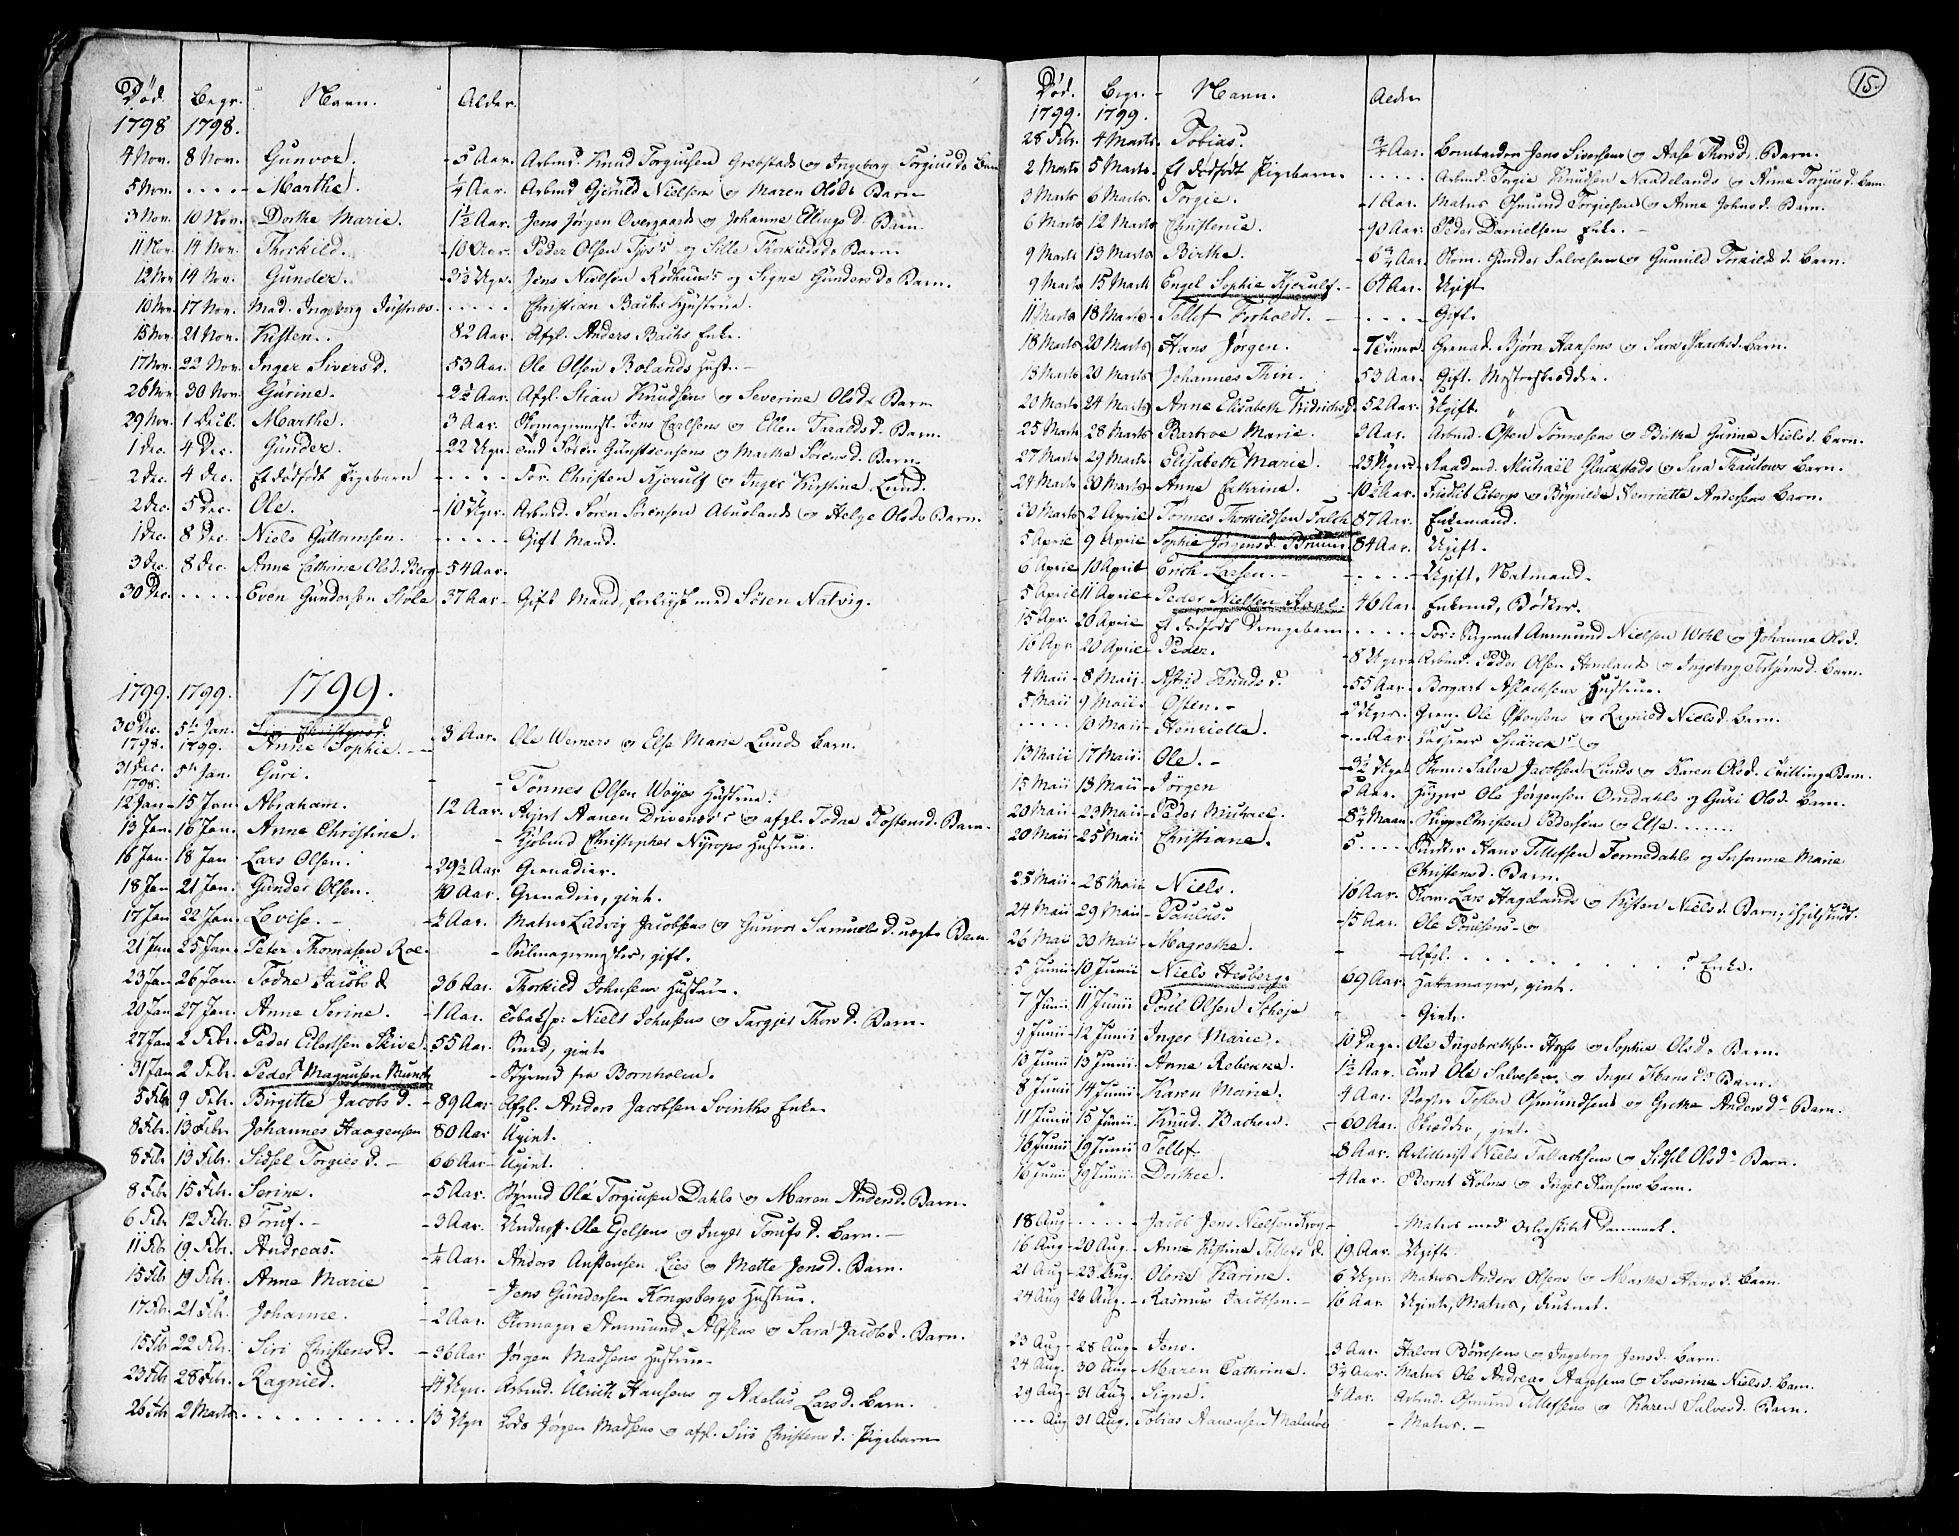 Død. Begr. Navn. Alder.
1798 1798.
4 Nov. 8 Nov. Gunvor. 5 Aar. Arbmd. Knud Torgiusen Grebstads og Ingeborg Torgiusd. Barn
5 Nov. Marthe. ¼ Aar. Arbmd Gjeruld Nielsens og Maren Olsd. Barn
3 Nov. 10 Nov. Dorthe Marie. 1½ Aar. Jens Jørgen Overgaards og Johanne Ellingsd. Barn
11 Nov. 14 Nov. Thorkild. 10 Aar. Peder Olsen og Sille Thorkildsd. Barn
12 Nov 14 Nov. Gunder. 3½ Uger. Jens Nielsen og Signe Gundersd. Barn.
10 Nov 17 Nov. Mad. Ingeborg Christian Bachs Hustrue.
15 Nov 21 Nov. Kisten. 82 Aar. Afgl. Anders Bachs Enke.
17 Nov. 22 Nov. Inger Siversd. 53 Aar. Ole Olsen Bolands Hust.
26 Nov 30 Nov. Gurine. 2½ Aar. Afgl. Stian Knudsens og Severine Olsd. Barn
29 Nov. 1 Decb. Marthe. 3 Aar. Skomagermest. Jens Carlsens og Ellen Taraldsd. Barn.
1 Dec. 4 Dec. Gunder. 22 Uger. Tmd Søren Gunstensens og Marthe Sørensd. Barn
2 Dec. 4 Dec. Et dødfødt Pigebarn For. Christen Kjerulf og Inger Kirstine Lund.
2 Dec. 5 Dec. Ole. 10 Uger. Arbmd. Søren Sørensen Abuslands og Helge Olsd. Barn.
1 Dec. 8 Dec. Niels Guttormsen. Gift Mand.
3 Dec. 8 Dec. Anne Cathrine Olsd. Berg 54 Aar.
30 Dec. Even Gundersen Støle 37 Aar. Gift Mand, forliist med Søren Natvig.
1799. 1799. 1799.
30 Dec. 1798. 5te Jan. 1799. Anne Sophie. 3 Aar. Ole Werners og Else Marie Lunds Barn.
31 Dec. 1798. 5te Jan. Guri. Tønnes Olsen Hustrue.
12 Jan 15 Jan. Abraham. 12 Aar. Asjer Aanen og afgl. Todne Tostensd. Barn.
13 Jan 16 Jan. Anne Christine. Kjøbmd Christopher Nyrops Hustrue.
16 Jan. 18 Jan Lars Olsen. 29½ Aar Grenadier.
18 Jan 21 Jan. Gunder Olsen. 40 Aar. Grenadier, givt.
17 Jan 22 Jan. Lovise. ½ Aar. Matros Ludvig Jacobsens og Gunvor Samuelsd. uægte Barn.
21 Jan 25 Jan. Peter Thomasen Roe. Seilmagermester, gift.
23 Jan 26 Jan. Todne Jacobsd 36 Aar. Thorkild Johnsens Hustrue.
20 Jan 27 Jan. Anne Serine. 1 Aar. Tobaksp: Niels Johnsens og Targjer Thorsd. Barn.
27 Jan 2 Febr. Peder Eilertsen Skive. 55 Aar. Smed, givt
31 Jan 2 Febr. Peder Magnusen Munch Styrmd fra Bornholm.
5 Feb 9 Febr. Birgitte Jacobsd. 89 Aar Afgl. Anders Jacobsen Svinths Enke
8 Febr. 13 Febr. Johannes Haagensen 80 Aar Ugivt.
8 Feb 13 Febr. Sidsel Torgiesd. 66 Aar Ugivt.
8 Feb 15 Febr. Serine. 5 Aar. Styrmd Ole Torgiusen Dahls og Maren Andersd. Barn.
6 Feb 12 Febr. Toruf. 3 Aar. Undugt. Ole Ejelsens og Inger Torufsd. Barn.
11 Feb 19 Febr. Andreas. ¼ Aar. Anders Austensen Lies og Mette Jensd. Barn.
15 Feb 19 Febr. Anne Marie Jens Gundersen Kongsbergs Hustrue.
17 Feb. 21 Feb. Johanne. 2 Aar. Skomager Aamund Alfsens og Sara Jacobsd. Barn.
15 Feb 22 Feb. Siri Christensd. 36 Aar Jørgen Madsens Hustrue
23 Feb 28 Febr. Ragnild. 4 Uger. Arbmd. Ulrich Hansens og Aaelus Larsd. Barn.
26 Feb 2 Marts. 13 Uger Lods Jørgen Madsens og afgl. Siri Christensd. Pigebarn
15.
Død. Begr. Navn. Alder
1799. 1799.
28 Febr. 4 Marts. Tobias. ¾ Aar. Bombardeer Jens Siversens og Aase Thorsd. Barn.
2 Marts 5 Marts. Et dødfødt Pigebarn. Arbmd. Torgie Knudsen Naadelands og Anne Torgiusd. Barn
3 Marts 6 Marts. Torgie. 1 Aar. Matros Osmund Torgiesens og Anne Johnsd. Barn.
6 Marts 12 Marts Christence. 90 Aar. Peder Danielsens Enke.
9 Marts 13 Marts Birthe. 6¾ Aar. Skom. Gunder Salvesens og Gunnild Torkildsd. Barn.
9 Marts 15 Marts Engel Sophie Kjerulf. 64 Aar. Ugift
11 Marts 18 Marts Tellef Forholdt. Gift.
18 Marts 20 Marts Hans Jørgen. 7 Timer. Grenad. Bjørn Hansens og Sara Isachsd. Barn.
15 Marts 20 Marts Johannes Thin. 53 Aar. Gift.
20 Marts 24 Marts Anne Elisabeth Fridrichsd. 52 Aar. Ugift.
25 Marts 28 Marts Bartroe Marie. 2 Aar. Arbmd. Østen Tønnesens og Birthe Gurine Nielsd. Barn.
27 Marts 29 Marts Elisabeth Marie. 23 Uger. Raadmd. Michaël Gluckstads og Sara Thaulows Barn.
24 Marts 30 Marts Anne Cathrine. 10½ Aar. Fridlib Eibergs og Bergnilde Henriette Andersens Barn.
30 Marts 2 April Tønnes Thorkildsen Falch 87 Aar. Enkemand.
5 April 9 April Sophie Jørgensd. Bruun. 84 Aar. Ugift.
6 April 10 April Erich Larsen. Ugift, Natmand.
5 April 11 April Peder Nielsen 46 Aar. Enkemd, Bødker.
15 Apr. 20 April Et dødfødt Drengebarn For: Sergeant Aanmund Nielsen Wohl og Johanna Olsd.
16 Apr 20 April Peder. 8 Uger Arbmd. Peder Olsen Homlands og Ingeborg Barn.
4 Maii 8 Maii. Astrid Knudsd. 55 Aar. Borgart Aslachsens Hustrue.
5 Maii 9 Maii Østen. 3 Uger. Gren. Ole Ostensens og Ragnild Nielsd. Barn.
10 Maii Henriette. Aar.
13 Maii 17 Maii. Ole. 3½ Uger Skom: Salve Jacobsen Lunds og Karen Olsd. Tvilling Barn.
15 Maii 18 Maii Jørgen 2 Aar. Ole Jørgensen Omdahls og Guri Olsd. Barn.
20 Maii 23 Maii Peder Michael. 8½ Maan. Skipper Christen Pedersens og Else
20 Maii 25 Maii Christiane. 5 Hans Tellefsen Tonnedahls og Susanne Marie Christensd. Barn.
25 Maii 28 Maii Niels. 16 Aar. Skom: Lars Hagelands og Kisten Nielsd. Barn, ihjelstødt.
24 Maii 29 Maii Paulus. 15 Aar. Ole Poulsens og
26 Maii 30 Maii Magrethe. Afgl. Enke.
5 Junii 10 Junii Niels Hesberg. 69 Aar. Hattemager, givt.
7 Junii 11 Junii Povil Olsen Scheje Givt.
9 Junii 12 Junii Inger Marie. 10 Dage. Ole Ingebretsen og Sophie Olsd. Barn.
10 Junii 13 Junii Anne Rebekka. 1½ Aar. Tmd Ole Salvesens og Inger Hansd. Barn.
8 Junii 14 Junii Karen Maine. 4 Aar. Tosten Osmundsens og Grethe Andersd. Barn.
11 Junii 15 Junii Knud Bachen. 60 Aar. Skrædder, givt.
16 Junii 19 Junii Tellef. 8 Aar. Artillerist Niels Tallachsens og Sidsel Olsd. Barn.
16 Junii 19 Junii Dorthee. 4 Aar. Bernt Holms og Inger Hansens Barn.
18 Aug Jacob Jens Nielsen Krog Matros med Orlogskibet Danmark.
16 Aug 20 Aug. Anne Kistine Tellefsd. 19 Aar. Ugift.
21 Aug 23 Aug. Olene Karine. 6 Uger. Matros Anders Olsens og Marthe Hansd. Barn.
24 Aug 26 Aug. Rasmus Jacobsen. 16 Aar. Ugivt, Matros, druknet.
23 Aug 28 Aug Jens. 3 Aar. Halvor Børresens og Ingeborg Jensd. Barn.
24 Aug. 30 Aug. Maren Cathrine. 3½ Aar. Matros Ole Andreas Aagesens og Severine Nielsd. Barn.
29 Aug. 31 Aug. Signe. ½ Aar. Arbmd. Osmund Tellefsens og Karen Salvesd. Barn.
Aug 31 Aug. Tobias Aanensen Malmøe Matros.